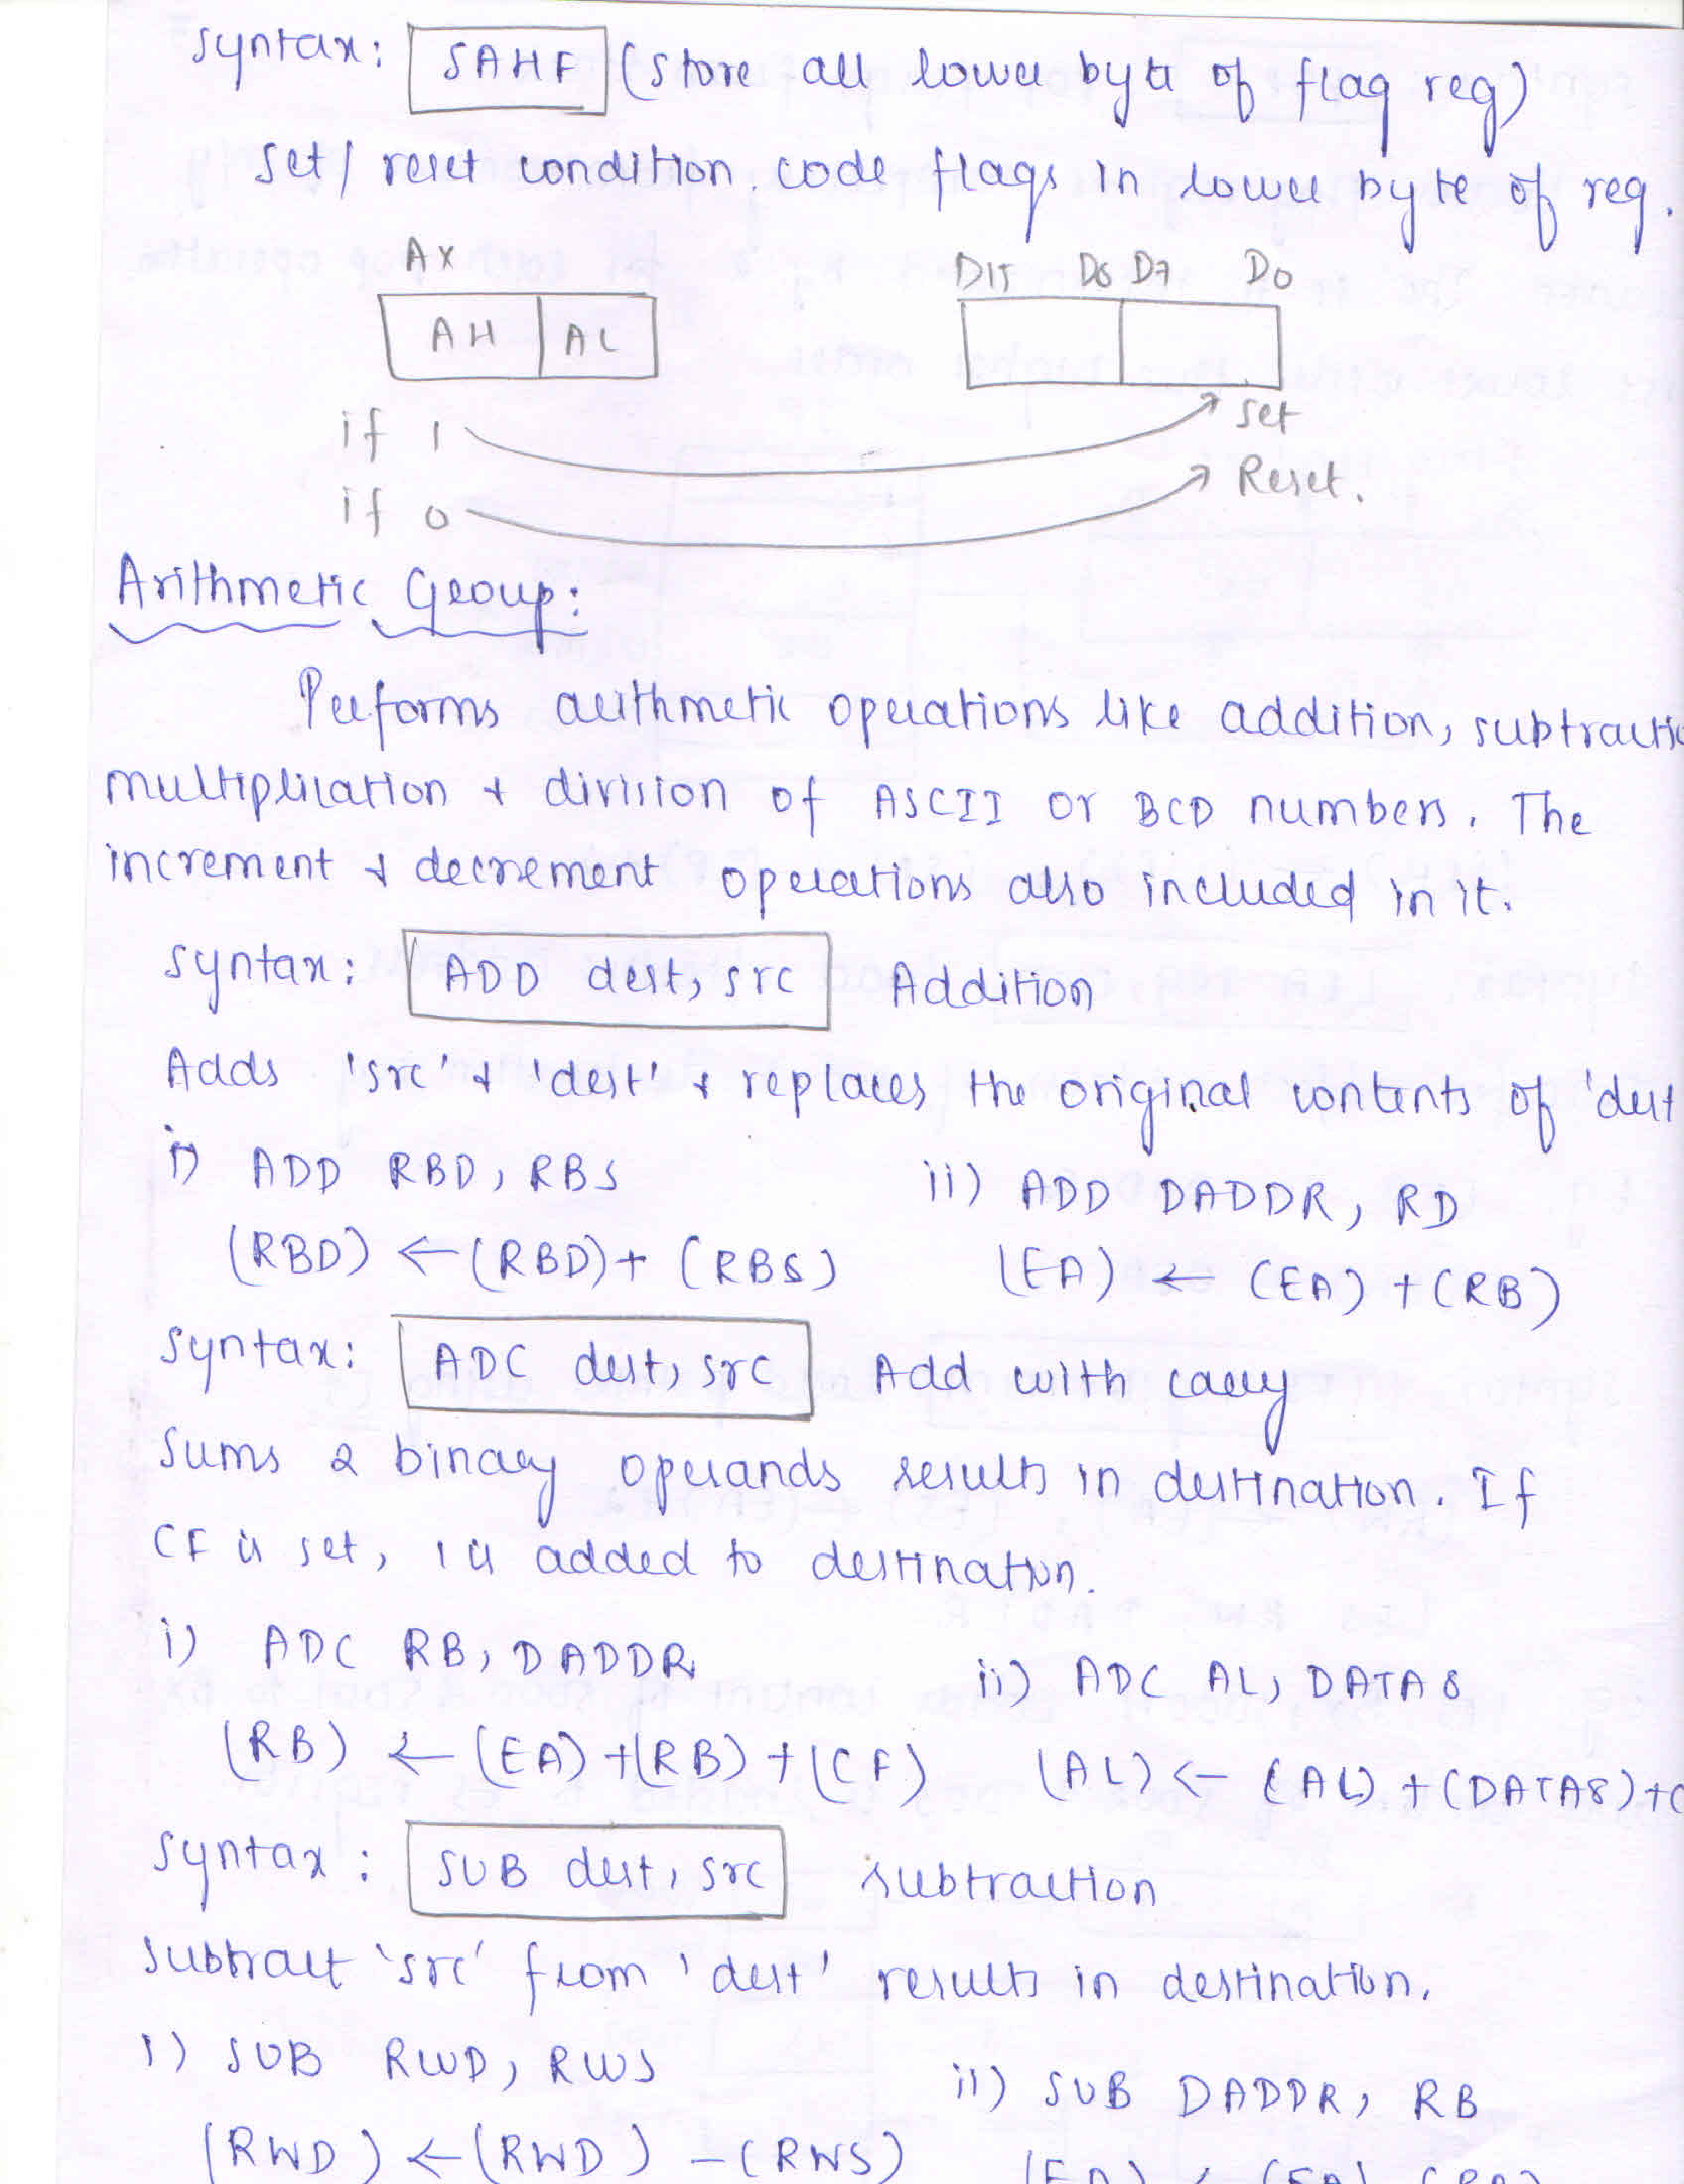 Syntax: SAHF (Store all lower byte of flag reg)
Set/ reset condition code flags in lower byte of reg.
AX
D15 D8 D7 D0
AH AL
if 1 set
if 0 Reset.
Arithmetic Group:
Performs arithmetic operations like addition, subtractio
multiplication & division of ASCII or BCD numbers. The
increment & decrement operations also included in it.
Syntax: ADD dest, src Addition
Adds 'src' & 'dest' & replaces the original contents of 'dest
i) ADD RBD, RBS ii) ADD DADDR, RD
(RBD) ← (RBD) + (RBS) (EA) ← (EA) + (RB)
Syntax: ADC dest, src Add with carry
Sums 2 binary operands results in destination. If
CF is set, 1 is added to destination.
i) ADC RB, DADDR ii) ADC AL, DATA8
(RB) ← (EA) + (RB) + (CF) (AL) ← (AL) + (DATA8) + C
Syntax: SUB dest, src subtraction
Subtract 'src' from 'dest' results in destination.
i) SUB RWD, RWS ii) SUB DADDR, RB
(RWD) ← (RWD) - (RWS)